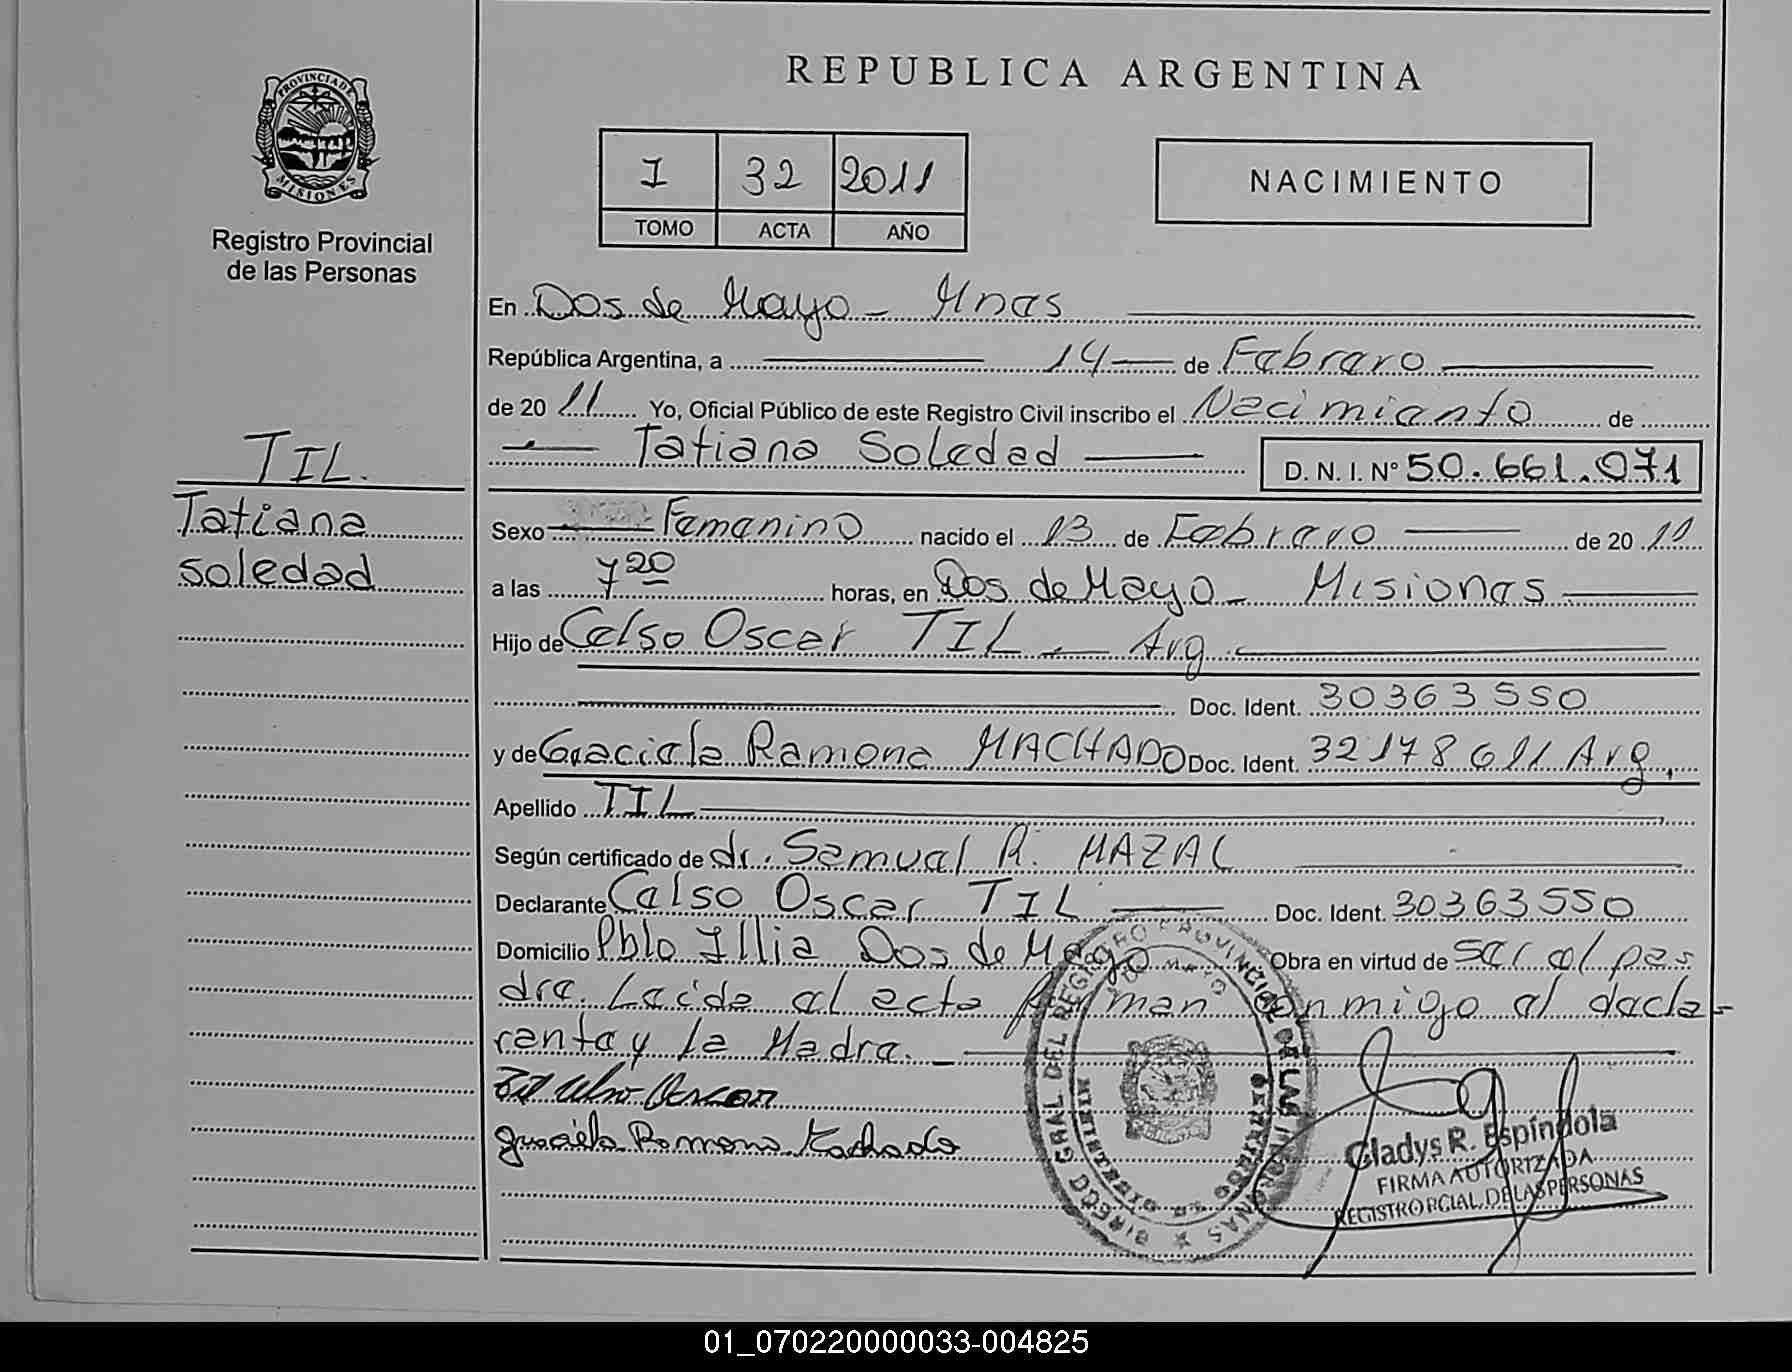 REPUBLICA ARGENTINA
PROVINCIA DE
MISIONES
Registro Provincial
de las Personas
I 32 2011
TOMO ACTA AÑO
NACIMIENTO
TIL.
Tatiana
soledad
En Dos de Mayo - Mnes
República Argentina, a 14 de Febrero
de 2011 Yo, Oficial Público de este Registro Civil inscribo el Nacimiento de
Tatiana Soledad D. N. I. Nº 50.661.071
Sexo Femenino nacido el 13 de Febrero de 2011
a las 7 20 horas, en Dos de Mayo - Misiones
Hijo de Celso Oscar TIL - Arg.
Doc. Ident. 30363550
y de Graciela Ramona MACHADO Doc. Ident. 32178611 Arg.
Apellido TIL
Según certificado de dr. Samuel R. MAZAL
Declarante Celso Oscar TIL Doc. Ident. 30363550
Domicilio Pblo Illia Dos de Mayo Obra en virtud de ser el pa
dre. Leida el acta firman conmigo el decla-
rante y la Madre. -
Til Celso Oscar
Graciela Ramona Machado
Gladys R. Espíndola
FIRMA AUTORIZADA
REGISTRO PCIAL. DE LAS PERSONAS
01_070220000033-004825